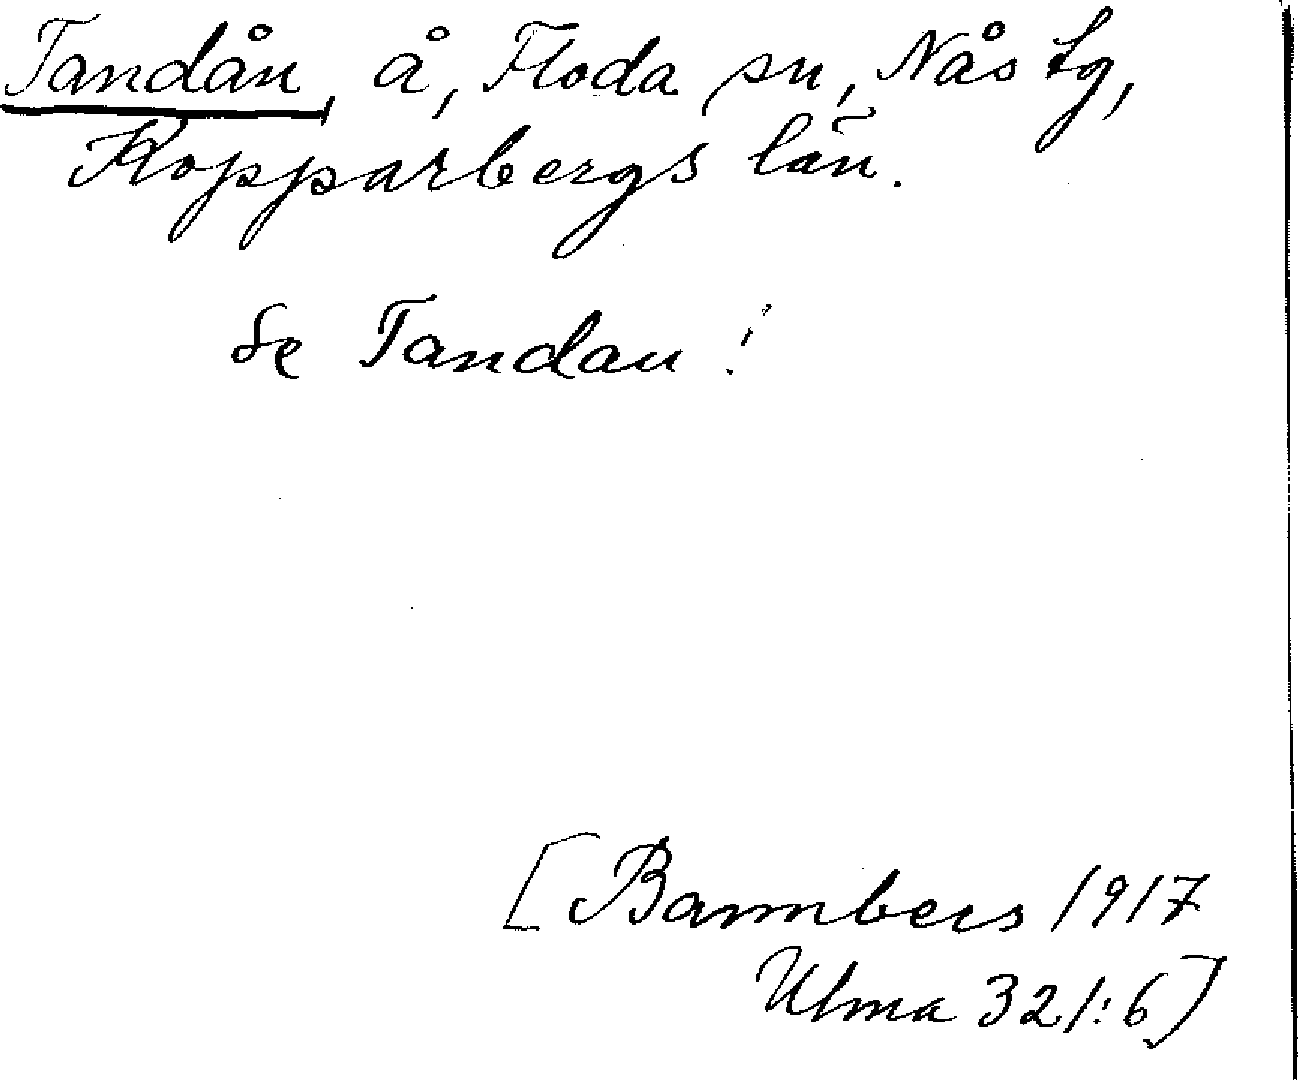 Tandån, å, Floda sn, Nås tg,
Kopparbergs län.
Se Tandan!
[Bannbers 1917
Ulma 321:6]